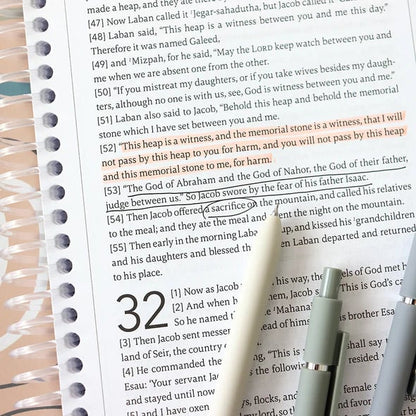 made a heap, and they ate there by
[47] Now Laban called it ᶠJegar-sahadutha, but Jacob called it
[48] Laban said, "This heap is a witness between you and me this day."
Therefore it was named Galeed,
[49] and ᶠMizpah, for he said, "May the LORD keep watch between you and
me when we are absent one from the other.
[50] "If you mistreat my daughters, or if you take wives besides my daugh-
ters, although no one is with us, see, God is witness between you and me."
[51] Laban also said to Jacob, "Behold this heap and behold the memorial
stone which I have set between you and me.
[52] "This heap is a witness, and the memorial stone is a witness, that I will
not pass by this heap to you for harm, and you will not pass by this heap
and this memorial stone to me, for harm.
[53] "The God of Abraham and the God of Nahor, the God of their father,
judge between us." So Jacob swore by the fear of his father Isaac.
[54] Then Jacob offered a sacrifice on the mountain, and called his relatives
to the meal; and they ate the meal and spent the night on the mountain.
[55] Then early in the morning Laban up, and kissed his ᶠgrandchildren
and his daughters and blessed Then Laban departed and returned
to his place.
32
[1] Now as Jacob his way, the of God met
[2] And when he them, Jacob s "This is God's
So he named ᶠMahana
[3] Then Jacob sent messen ead of him his brother Esau
land of Seir, the country
[4] He commanded the ing, "This shall say
Esau: 'Your servant Jac s, "I resided
and stayed until now
[5] and I have oxen flocks, and female
my lord, so